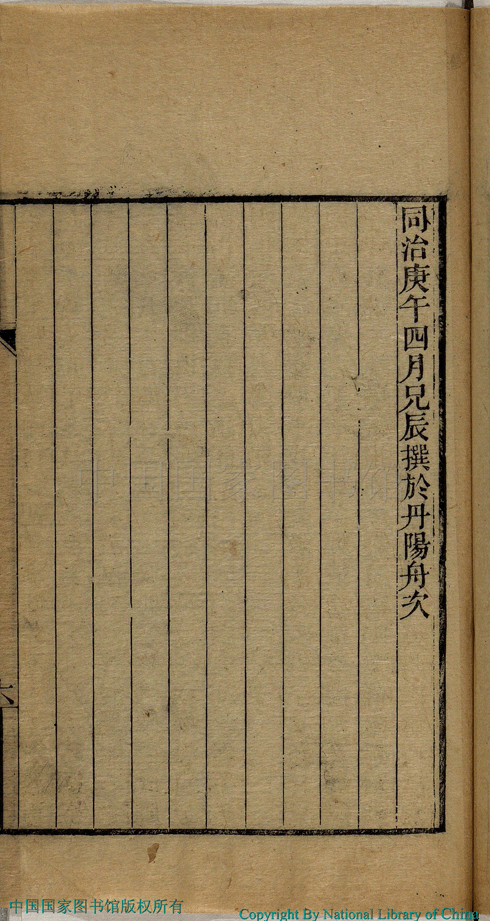 同治庚午四月兄辰撰於丹陽舟次
六
中国国家图书馆版权所有
Copyright By National Library of China